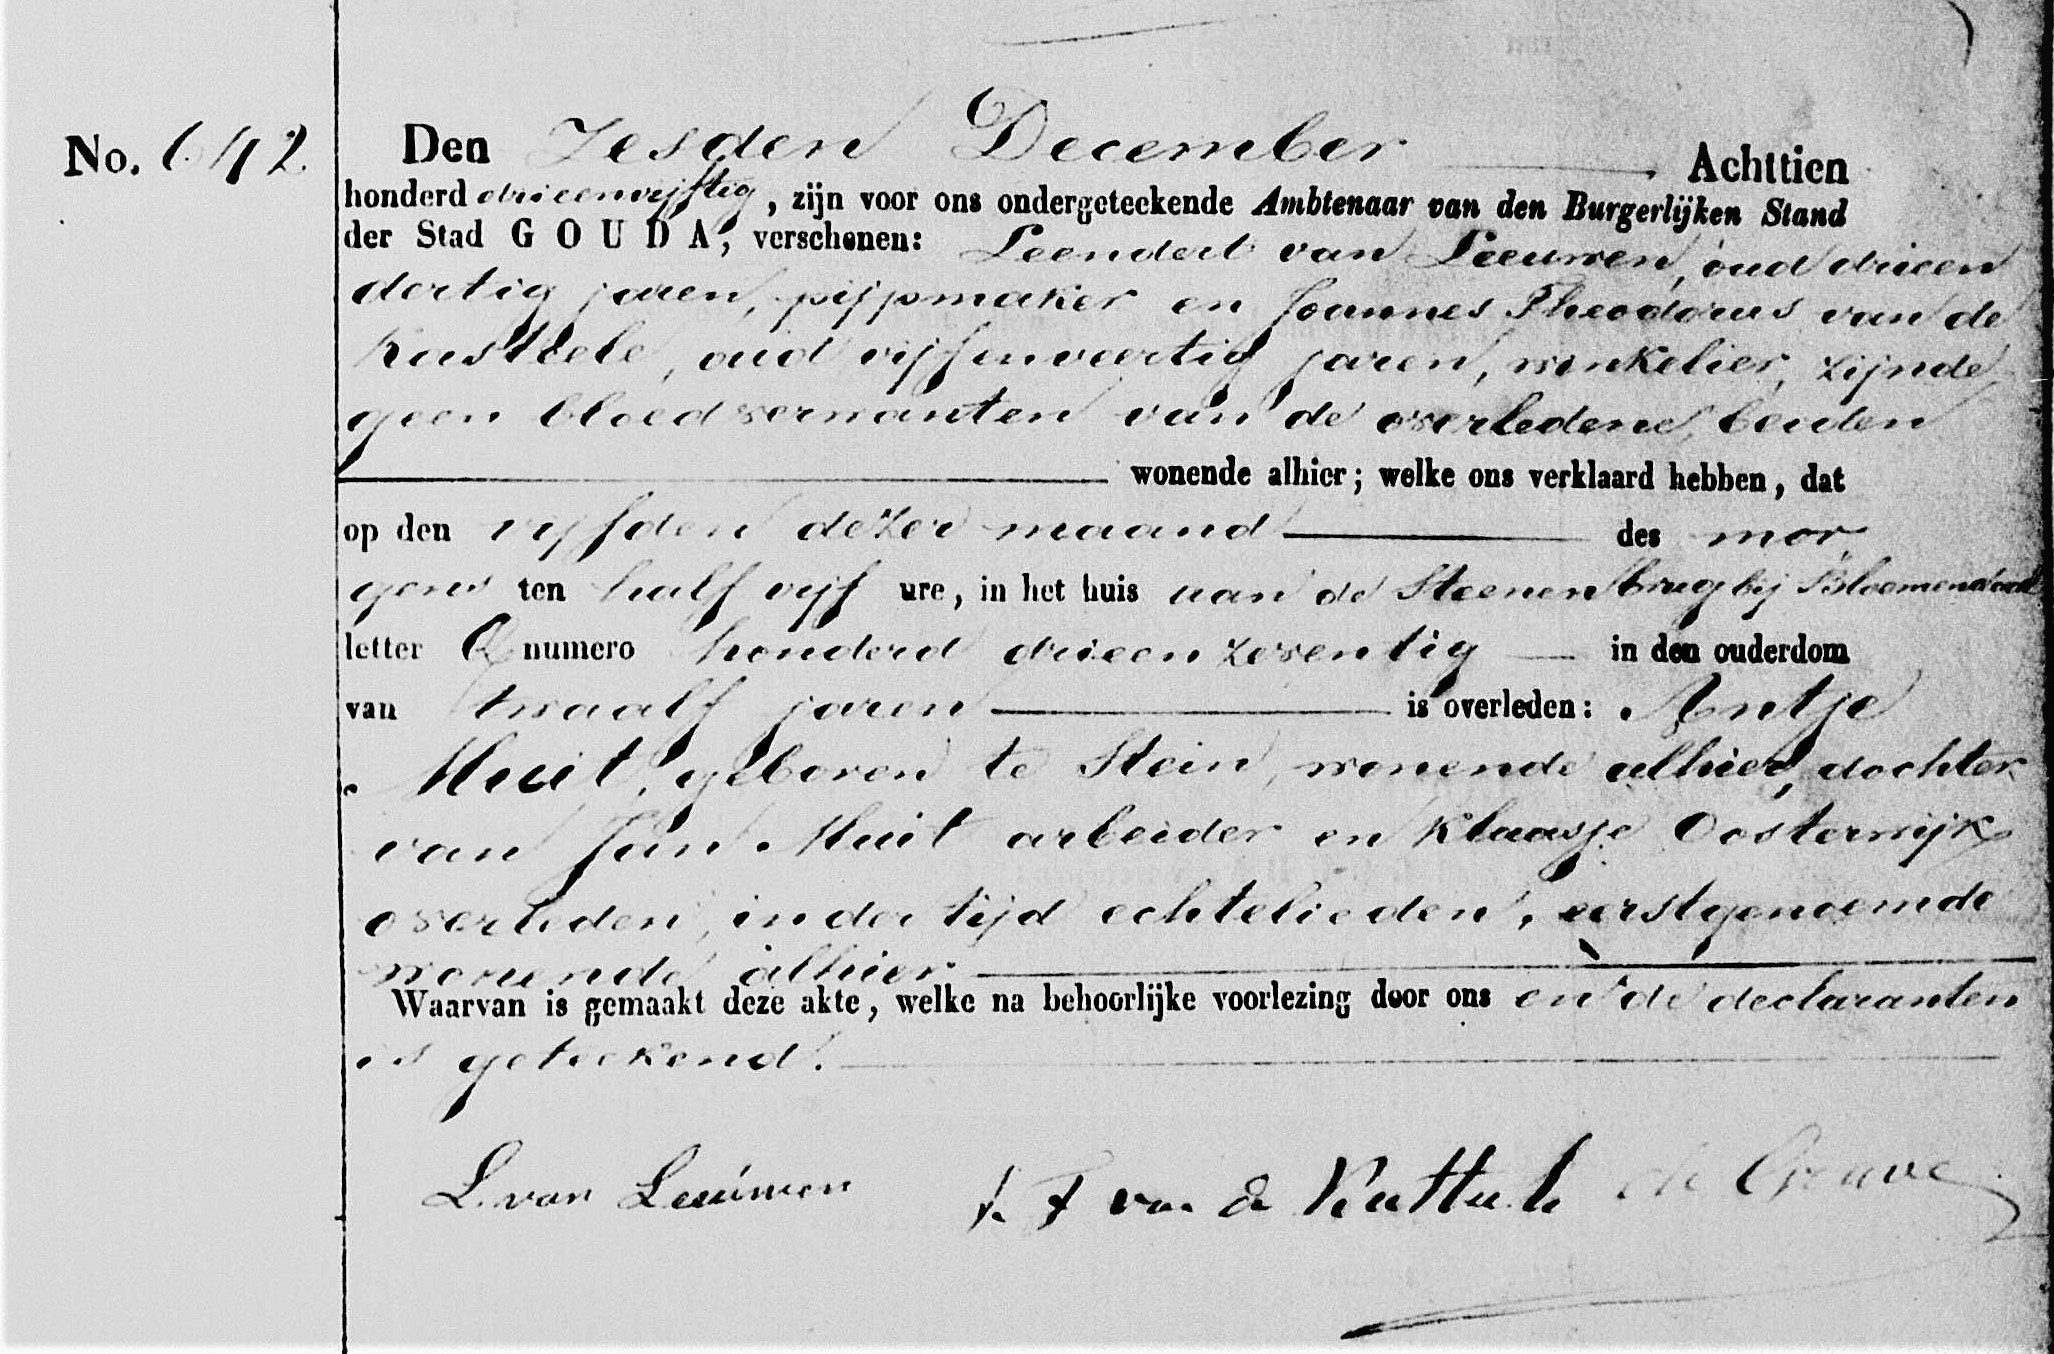 No. 642
Den Zesden December Achttien
honderd drieenvijftig, zijn voor ons ondergeteekende Ambtenaar van den Burgerlijken Stand
der Stad GOUDA, verschenen: Leendert van Leeuwen, oud drieen
dertig jaren, pijpmaker en Joannes Theodorus van de
Kasteele, oud vijfenveertig jaren, winkelier, zijnde
geen bloedverwanten van de overledene, beiden
wonende alhier; welke ons verklaard hebben, dat
op den vijfden dezer maand des mor
gens ten half vijf ure, in het huis aan de Steenen brug bij Bloemendaal
letter Q numero honderd drieenzesentig in den ouderdom
van twaalf jaren is overleden: Antje
Muit, geboren te Stein, wonende alhier, dochter
van Jan Muit arbeider en Klaasje Oosterwijk
overleden, in der tijd echtelieden, eerstgenoemde
wonende alhier
Waarvan is gemaakt deze akte, welke na behoorlijke voorlezing door ons en de declaranten
is geteekend.
L. van Leeuwen J. T van de Kasteele